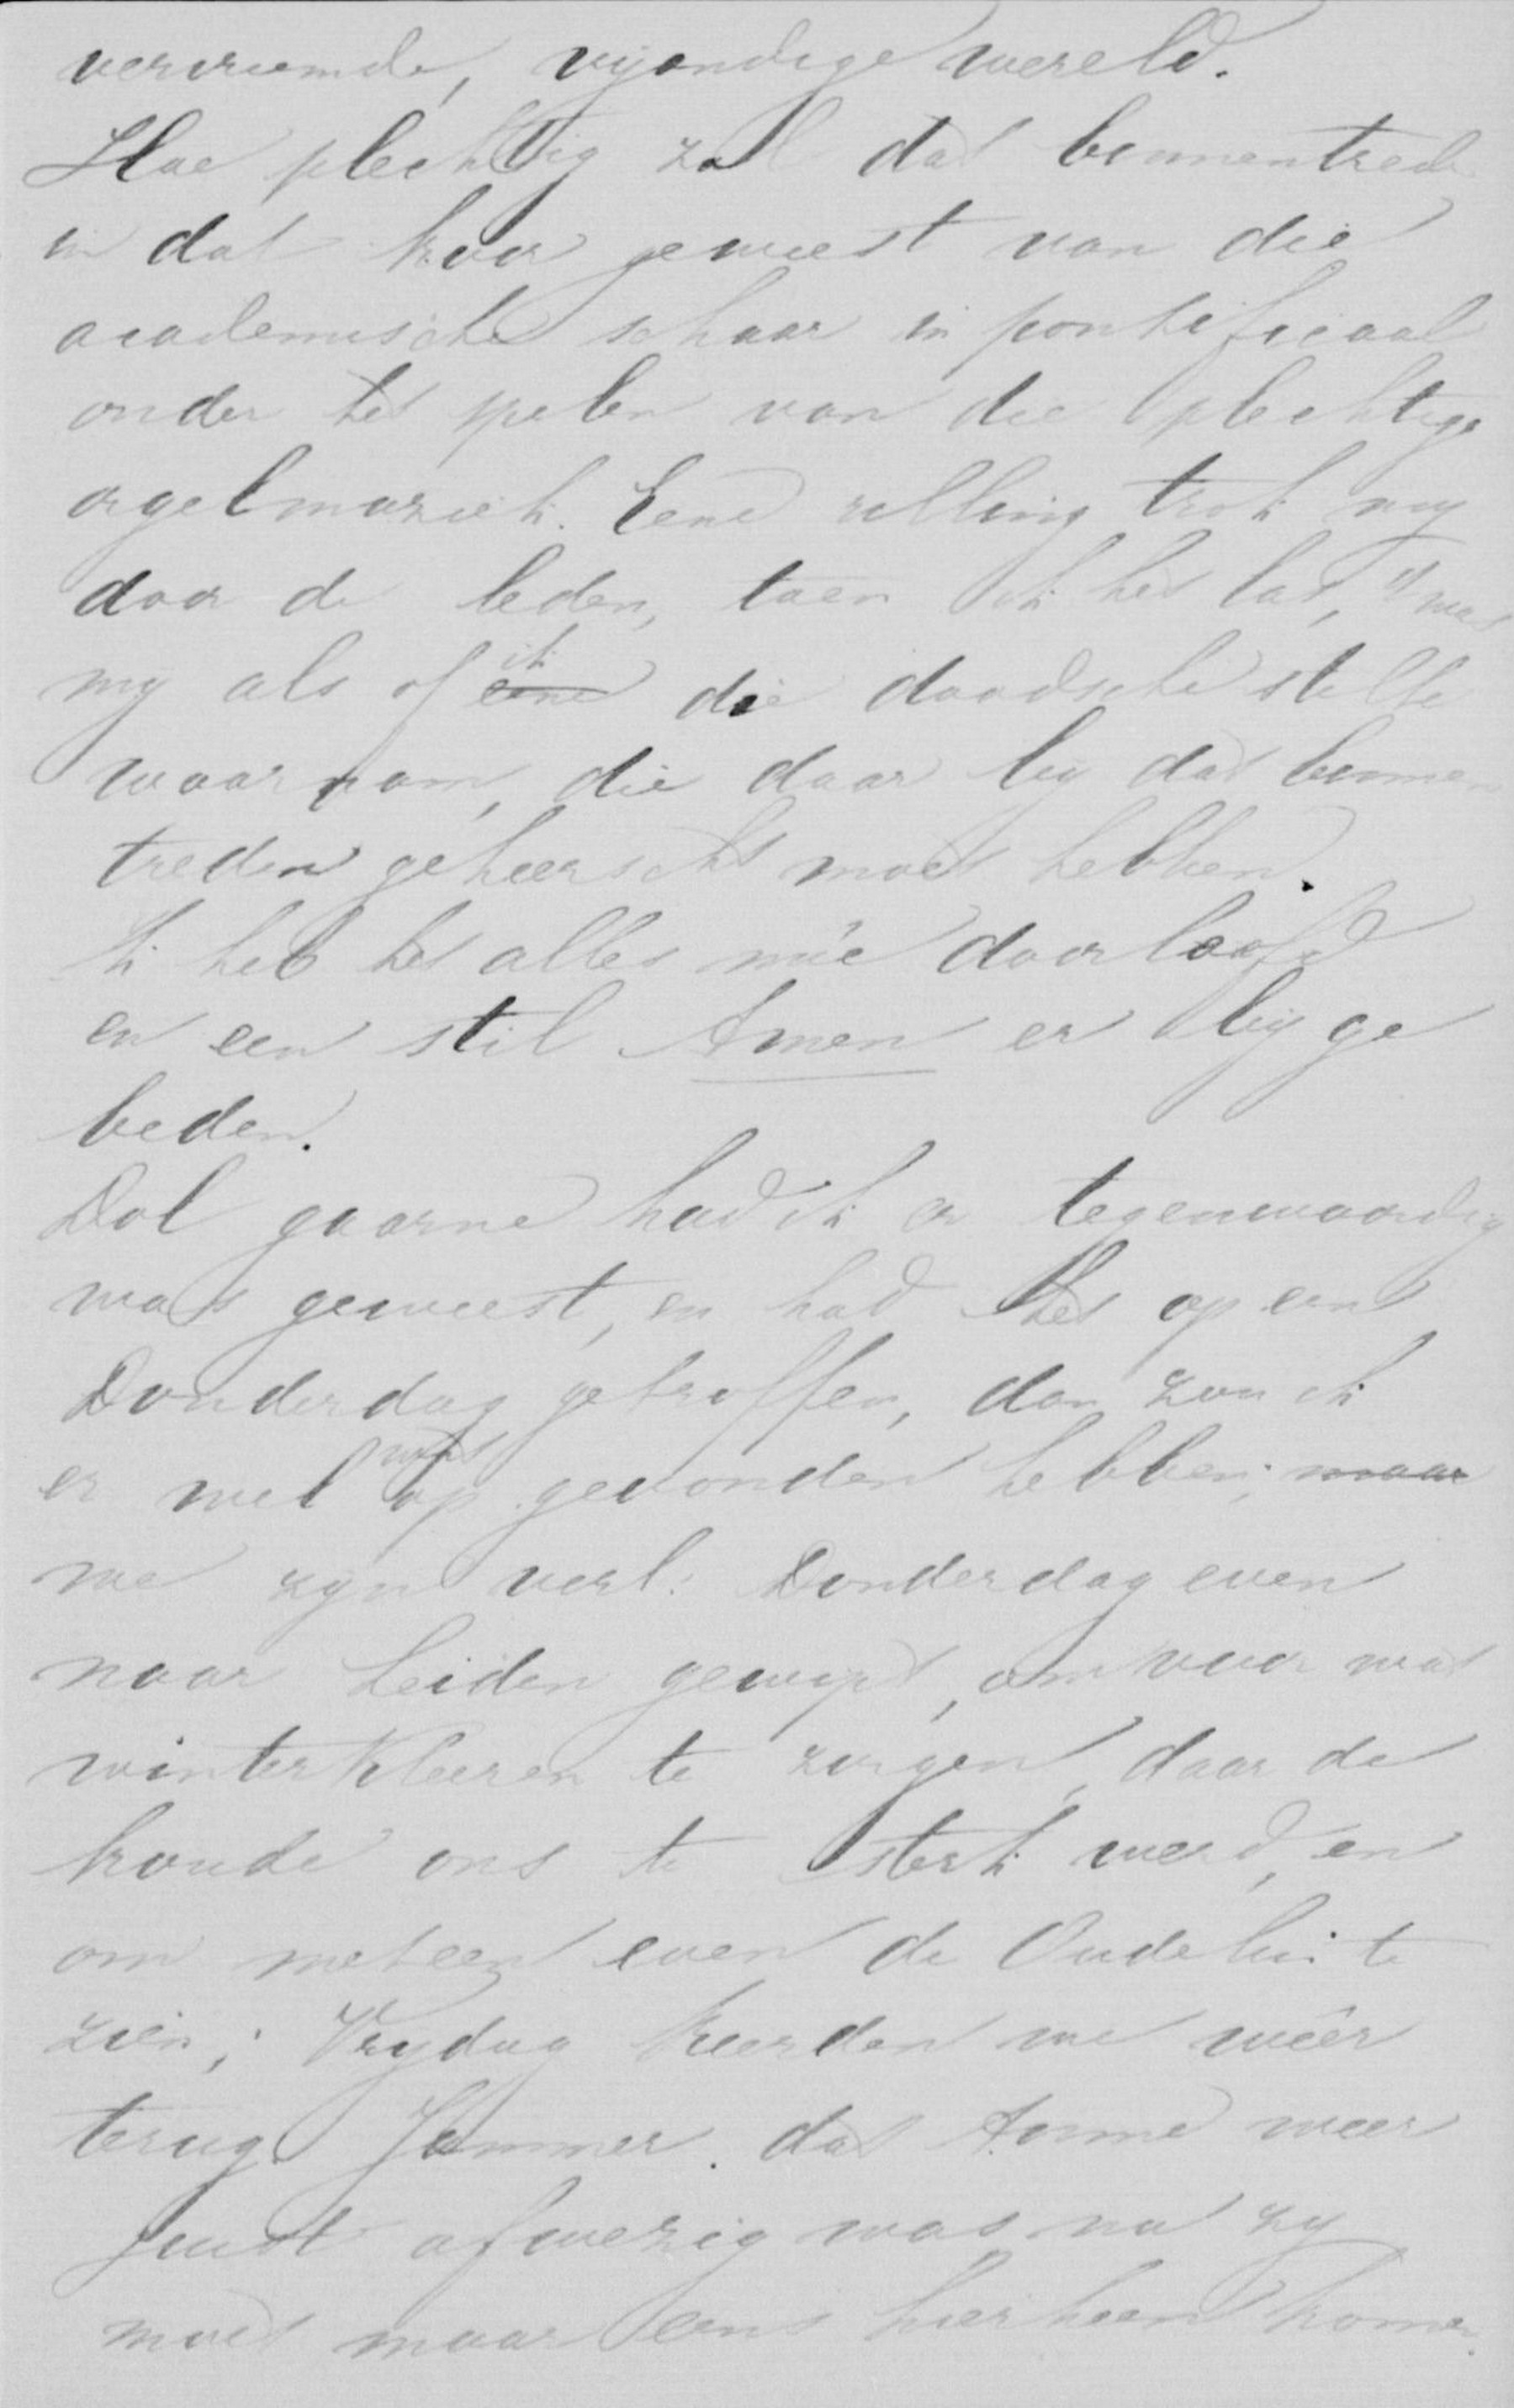 vervreemde, vyandige wereld.
Hoe plechtig zal dat binnentreden
in dat koor geweest van die
academische schaar in pontificaal
onder het spelen van die plechtige
orgelmuziek. Eene rilling trok my
door de leden, toen ik het las, 't was
my als of ik die doodsche stilte
waarnam, die daar by dat binnen
treden geheerscht moet hebben.
Ik heb het alles meê doorleefd
en een stil Amen er bij ge
beden.
Dol gaarne had ik er tegenwoordig
was geweest, en had het op een
Donderdag getroffen, dan zou ik
er wel wat op gevonden hebben; maar
we zyn verl: Donderdag even
naar Leiden gewipt, om voor wat
winterkleeren te zorgen, daar de
koude ons te sterk werd, en
om meteen even de Oudelui te
zien; Vrydag keerden we wêer
terug. Jammer dat Anna weer
juist afwezig was, nu zy
moet maar eens hierheen komen.